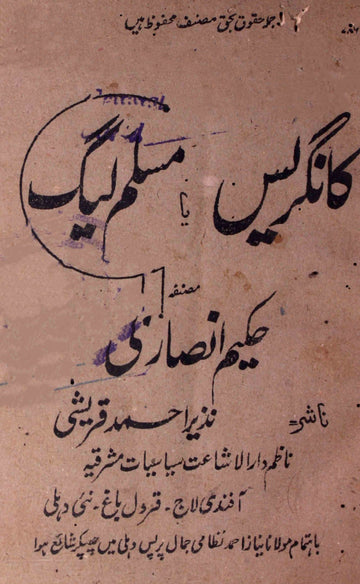 ۷۸۶
جملہ حقوق بحق مصنف محفوظ ہیں
کانگریس
یا
مسلم لیگ
مصنفہ
حکیم انصاری
ناشر
نذیر احمد قریشی
ناظم دارالاشاعت سیاسیات مشرقیہ
آفندی لاج - قرول باغ - نئی دہلی
باہتمام مولانا نیاز احمد نظامی جمال پریس دہلی میں چھپکر شائع ہوا